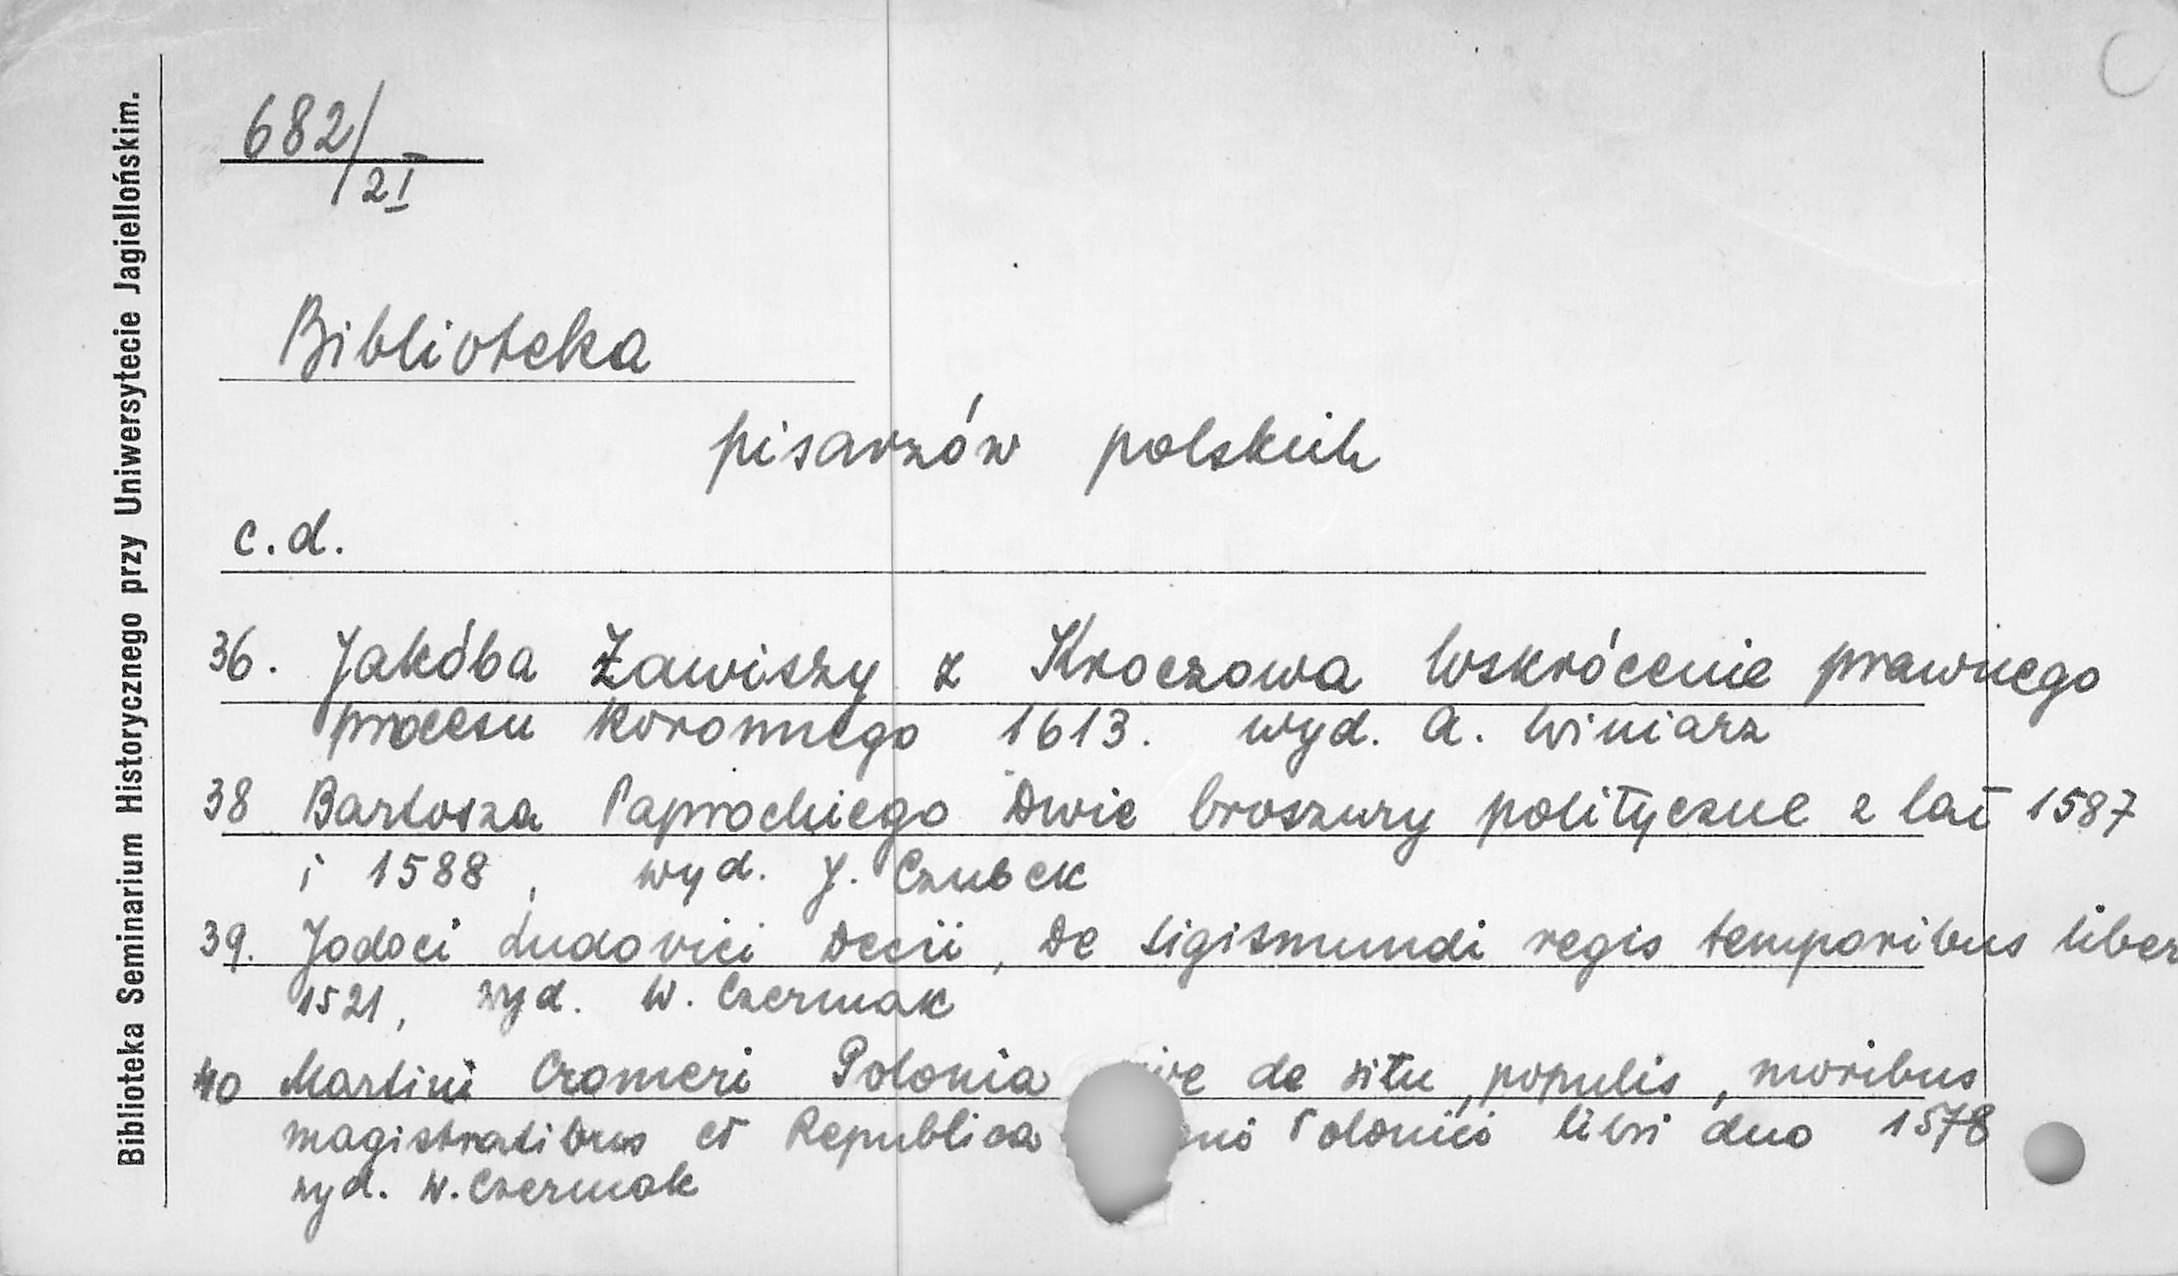 Biblioteka Seminarium Historycznego przy Uniwersytecie Jagiellońskim.
682/2I
Biblioteka
pisarzów polskich
c.d.
36. Jakóba Zawiszy z Kroczowa Wskrócenie prawnego
procesu koronnego 1613. wyd. A. Winiarz
38 Bartosza Paprockiego Dwie broszury polityczne z lat 1587
i 1588, wyd. J. Czubek
39. Jodoci Ludovici Decii, De Sigismundi regis temporibus liber
1521, wyd. W. Czermak
40 Martini Cromeri Polonia de situ, populis, moribus
magistratibus et Republica Polonici libri duo 1578
wyd. W. Czermak